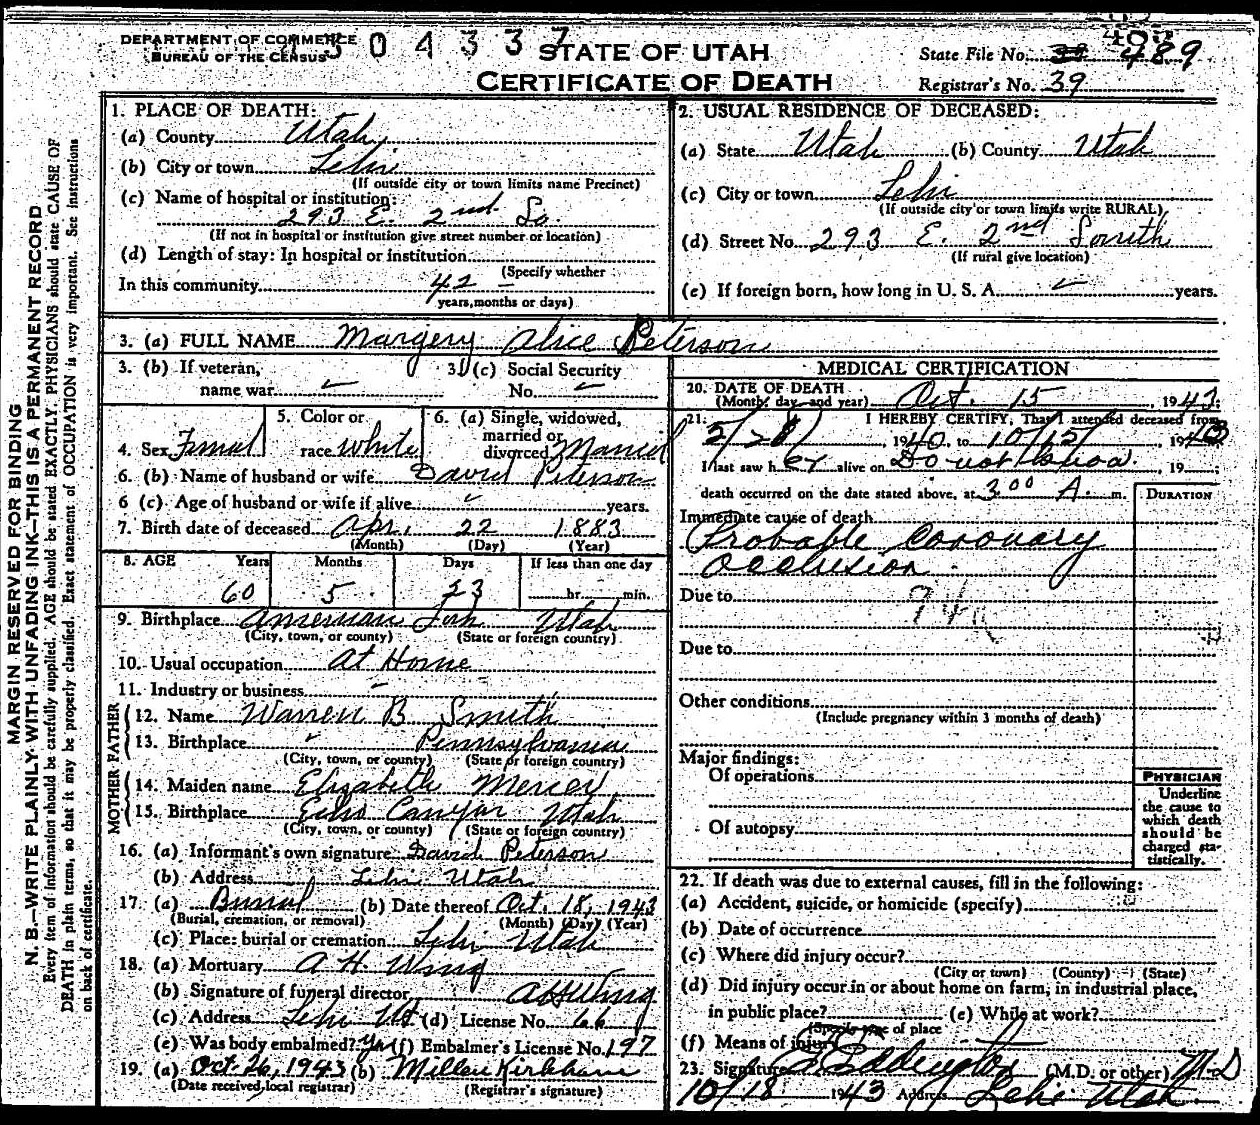 DEPARTMENT OF COMMERCE
BUREAU OF THE CENSUS
4304337
STATE OF UTAH
CERTIFICATE OF DEATH
State File No. 489
Registrar's No. 39
MARGIN RESERVED FOR BINDING
N. B.—WRITE PLAINLY WITH UNFADING INK—THIS IS A PERMANENT RECORD
Every item of information should be carefully supplied. AGE should be stated EXACTLY. PHYSICIANS should state CAUSE OF
DEATH in plain terms, so that it may be properly classified. Exact statement of OCCUPATION is very important. See instructions
on back of certificate.
1. PLACE OF DEATH:
(a) County Utah
(b) City or town Lehi
(If outside city or town limits name Precinct)
(c) Name of hospital or institution:
293 E. 2nd So.
(If not in hospital or institution give street number or location)
(d) Length of stay: In hospital or institution
(Specify whether
In this community 42 -
years, months or days)
2. USUAL RESIDENCE OF DECEASED:
(a) State Utah (b) County Utah
(c) City or town Lehi
(If outside city or town limits write RURAL)
(d) Street No. 293 E. 2nd South
(If rural give location)
(e) If foreign born, how long in U. S. A. years.
3. (a) FULL NAME Margery Alice Peterson
3. (b) If veteran,
name war
3. (c) Social Security
No.
4. Sex Femal
5. Color or
race White
6. (a) Single, widowed,
married or
divorced Married
6. (b) Name of husband or wife David Peterson
6 (c). Age of husband or wife if alive years.
7. Birth date of deceased Apr. 22 1883
(Month) (Day) (Year)
8. AGE Years Months Days If less than one day
60 5 23 hr. min.
9. Birthplace American Fork Utah
(City, town, or county) (State or foreign country)
10. Usual occupation At Home
11. Industry or business -
FATHER
12. Name Warren B Smith
13. Birthplace Pennsylvania
(City, town, or county) (State or foreign country)
MOTHER
14. Maiden name Elizabeth Mercey
15. Birthplace Echo Canyon Utah
(City, town, or county) (State or foreign country)
16. (a) Informant's own signature David Peterson
(b) Address Lehi Utah
17. (a) Burial (b) Date thereof Oct. 18, 1943
(Burial, cremation, or removal) (Month) (Day) (Year)
(c) Place: burial or cremation Lehi Utah
18. (a) Mortuary A H. Wing
(b) Signature of funeral director A H Wing
(c) Address Lehi Ut (d) License No. 66
(e) Was body embalmed? Yes (f) Embalmer's License No. 197
19. (a) Oct. 26, 1943 (b) Millen Kirkham
(Date received, local registrar) (Registrar's signature)
MEDICAL CERTIFICATION
20. DATE OF DEATH
(Month, day, and year) Oct. 15 1943.
21. I HEREBY CERTIFY, That I attended deceased from
5/28/ 1940 to 10/15/ 1943
I last saw her alive on 19
death occurred on the date stated above, at 3 00 A. m.
DURATION
Immediate cause of death
Probable Coronary
Occlusion
Due to 94a
Due to
Other conditions
(Include pregnancy within 3 months of death)
Major findings:
Of operations
Of autopsy
PHYSICIAN
Underline
the cause to
which death
should be
charged sta-
tistically.
22. If death was due to external causes, fill in the following:
(a) Accident, suicide, or homicide (specify)
(b) Date of occurrence
(c) Where did injury occur?
(City or town) (County) (State)
(d) Did injury occur in or about home on farm, in industrial place,
in public place? (e) While at work?
(Specify type of place
(f) Means of injury
23. Signature Eddington (M.D. or other) M.D
10/18 1943 Address Lehi Utah